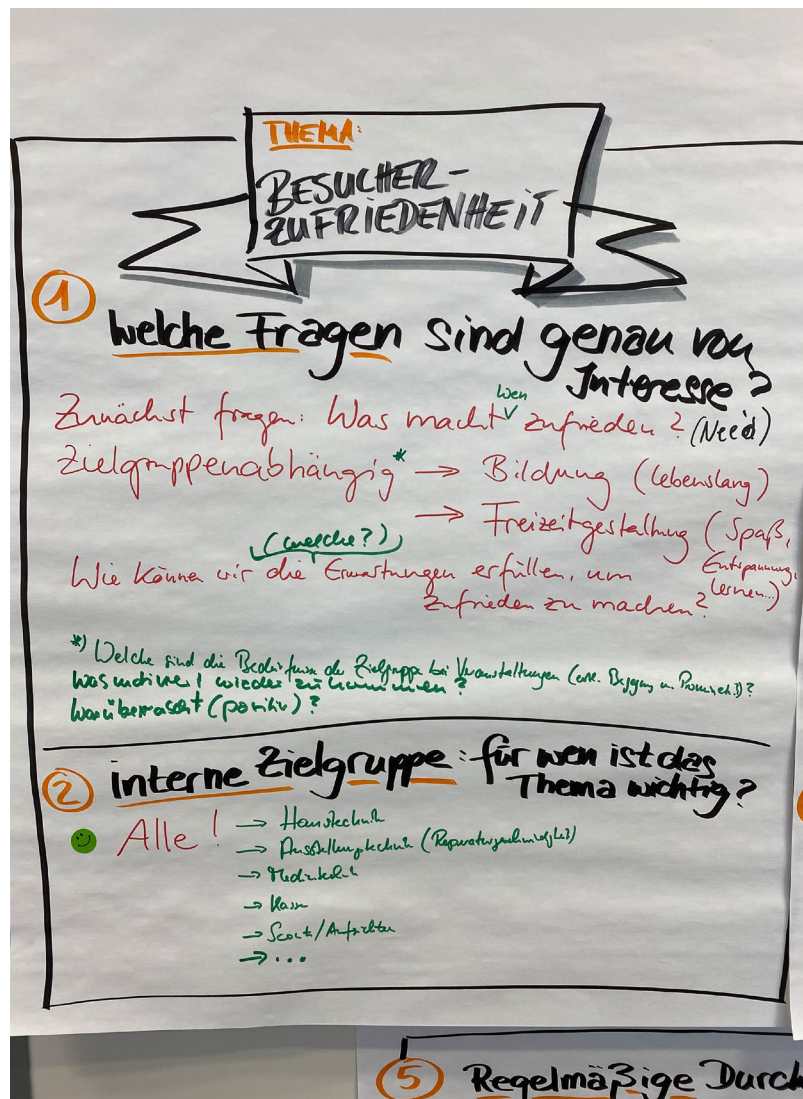 THEMA:
BESUCHER-
ZUFRIEDENHEIT
1
Welche Fragen sind genau von
Interesse?
wen
Zunächst fragen: Was macht zufrieden? (Need)
Zielgruppenabhängig* → Bildung (lebenslang)
→ Freizeitgestaltung (Spaß,
Entspannung,
lernen...)
(welche?)
Wie können wir die Erwartungen erfüllen, um
zufrieden zu machen?
*) Welche sind die Bedürfnisse der Zielgruppe bei Veranstaltungen
was motiviert wieder zu kommen?
Was überrascht (positiv)?
2
interne Zielgruppe: für wen ist das
Thema wichtig?
Alle!
→ Haustechnik
→ Ausstellungstechnik (Reparaturgeschwindigkeit)
→ Medientechnik
→ Kasse
→ Scouts/Aufsichten
→ ...
5
Regelmäßige Durch